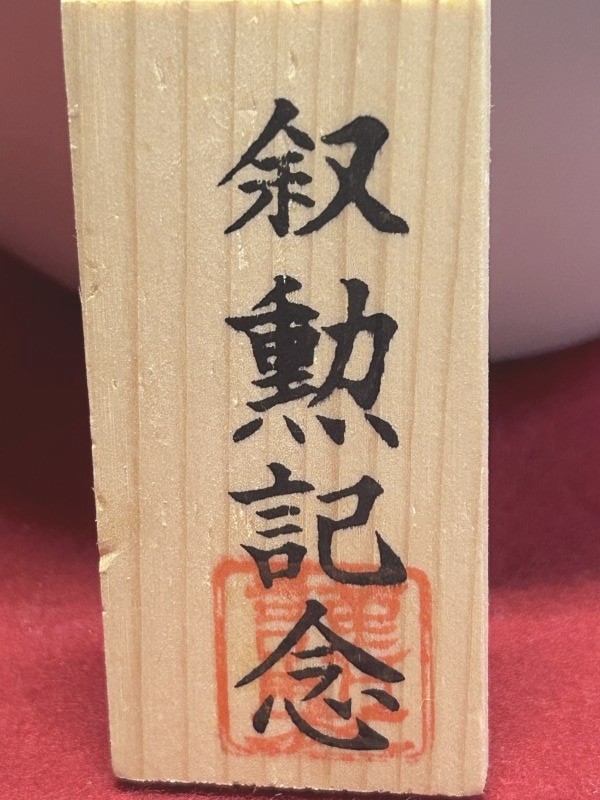 叙勲記念